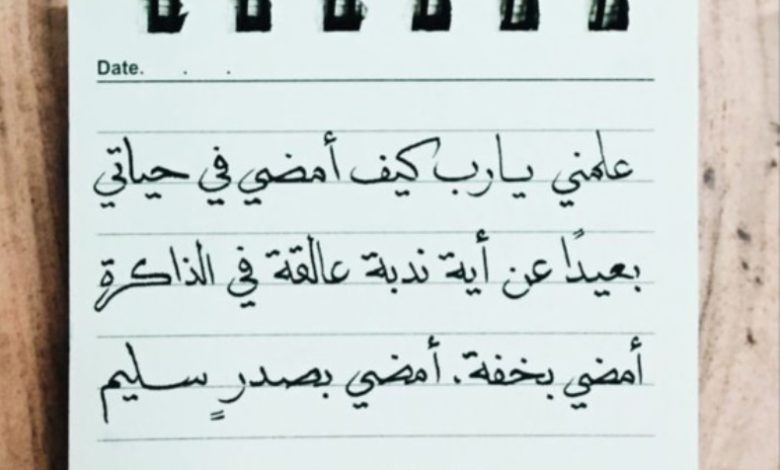 Date. . .
علمني يارب كيف أمضي في حياتي
بعيدًا عن أية ندبة عالقة في الذاكرة
أمضي بخفة. أمضي بصدرٍ سليم